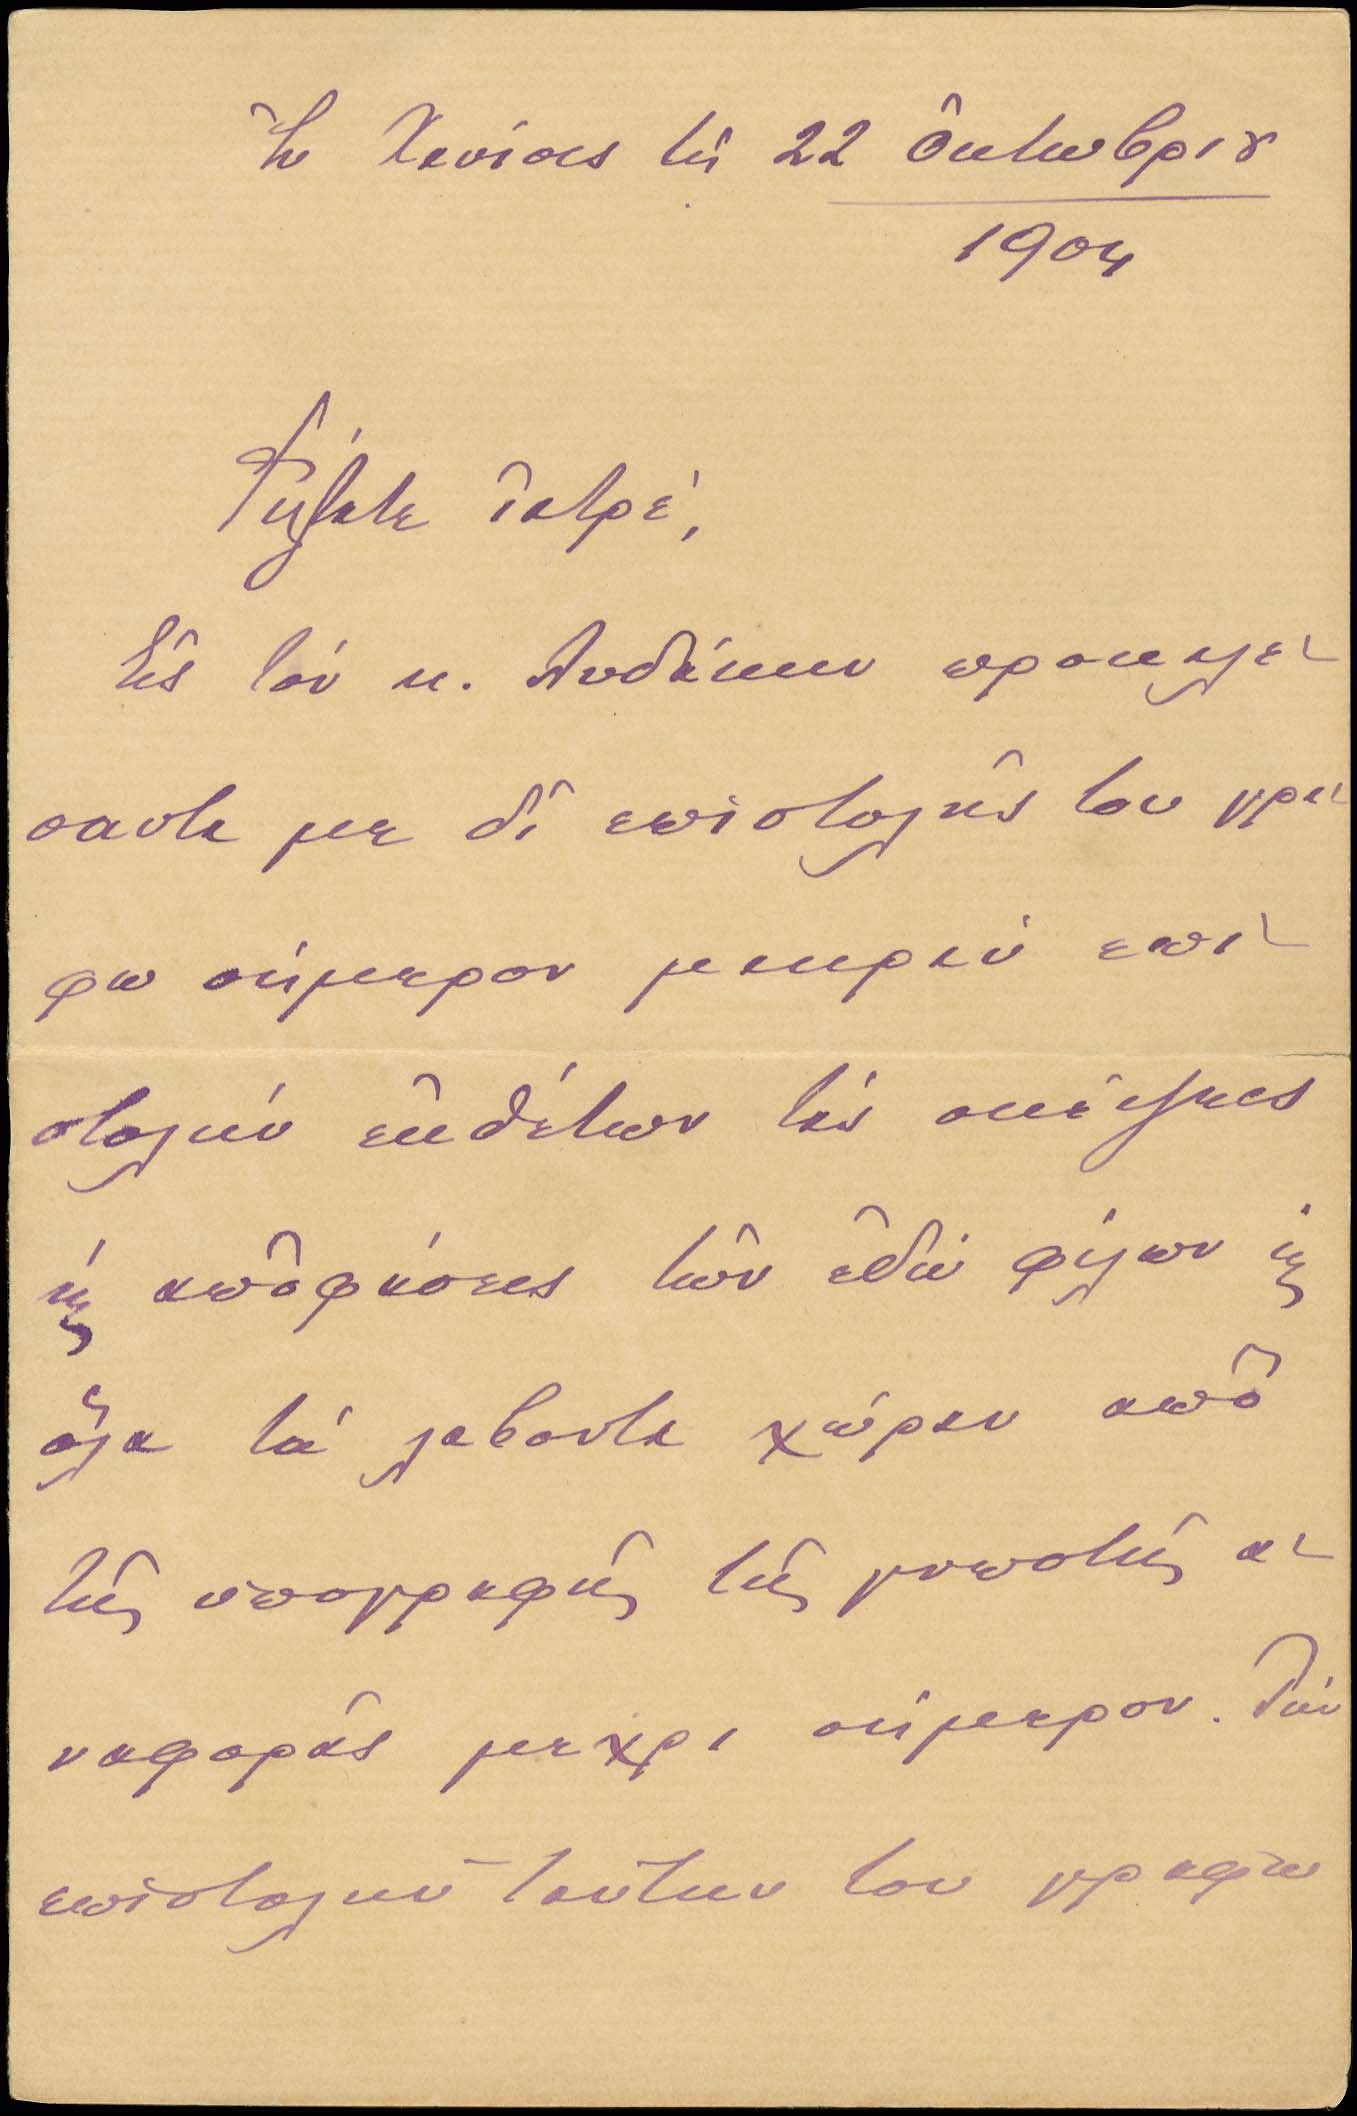 Ἐν Χανίοις τῇ 22 Ὀκτωβρίου
1904
Φίλτατε ἰατρέ,
Εἰς τόν κ. προκαλέ-
σαντα με δι' ἐπιστολῆς του γρά-
φω σήμερον μακράν ἐπι-
στολήν ἐκθέτων τάς σκέψεις
καί ἀποφάσεις τῶν ἐδώ φίλων καί
ὅλα τά λαβοντα χώραν ἀπό
τῆς ὑπογραφῆς τῆς γνωστῆς ἀ-
ναφορᾶς μεχρι σήμερον. Τήν
ἐπιστολήν ταύτην του γράφω